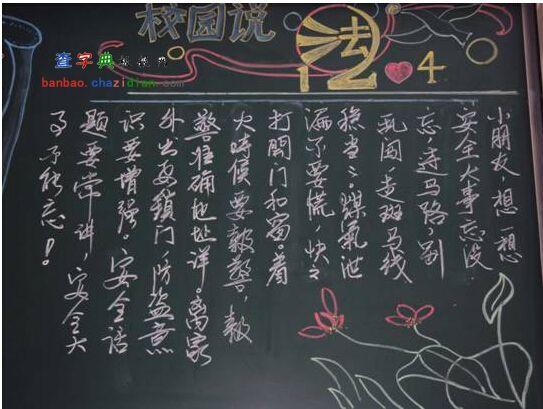 校园说法 4
查字典
banbao.chazidian.com
小朋友，想一想
安全大事忘没
忘，过马路，别
乱闯，走斑马线
稳当々。煤氣泄
漏不要慌，快々
打開门和窗。着
火時候要報警，報
警准确地址详。离家
外出要锁门，防盗意
识要增强。安全话
题要常讲，安全大
事不能忘！